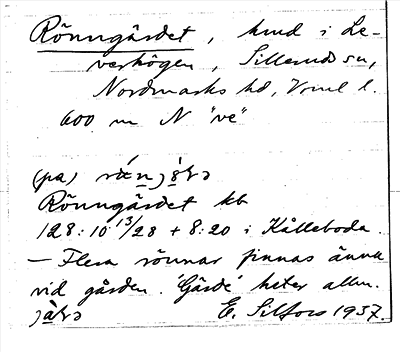 Rönngärdet, hmd i Le-
verhögen, Sillerud sn,
Nordmarks hd, Vrml l.
600 m N "ve"
(på)
Rönngärdet kb
128:10 13/28 + 8:20 i Kålleboda.
— Flera rönnar finnas ännu
vid gården. 'Gärde' heter allm.
E. Silfors 1937.